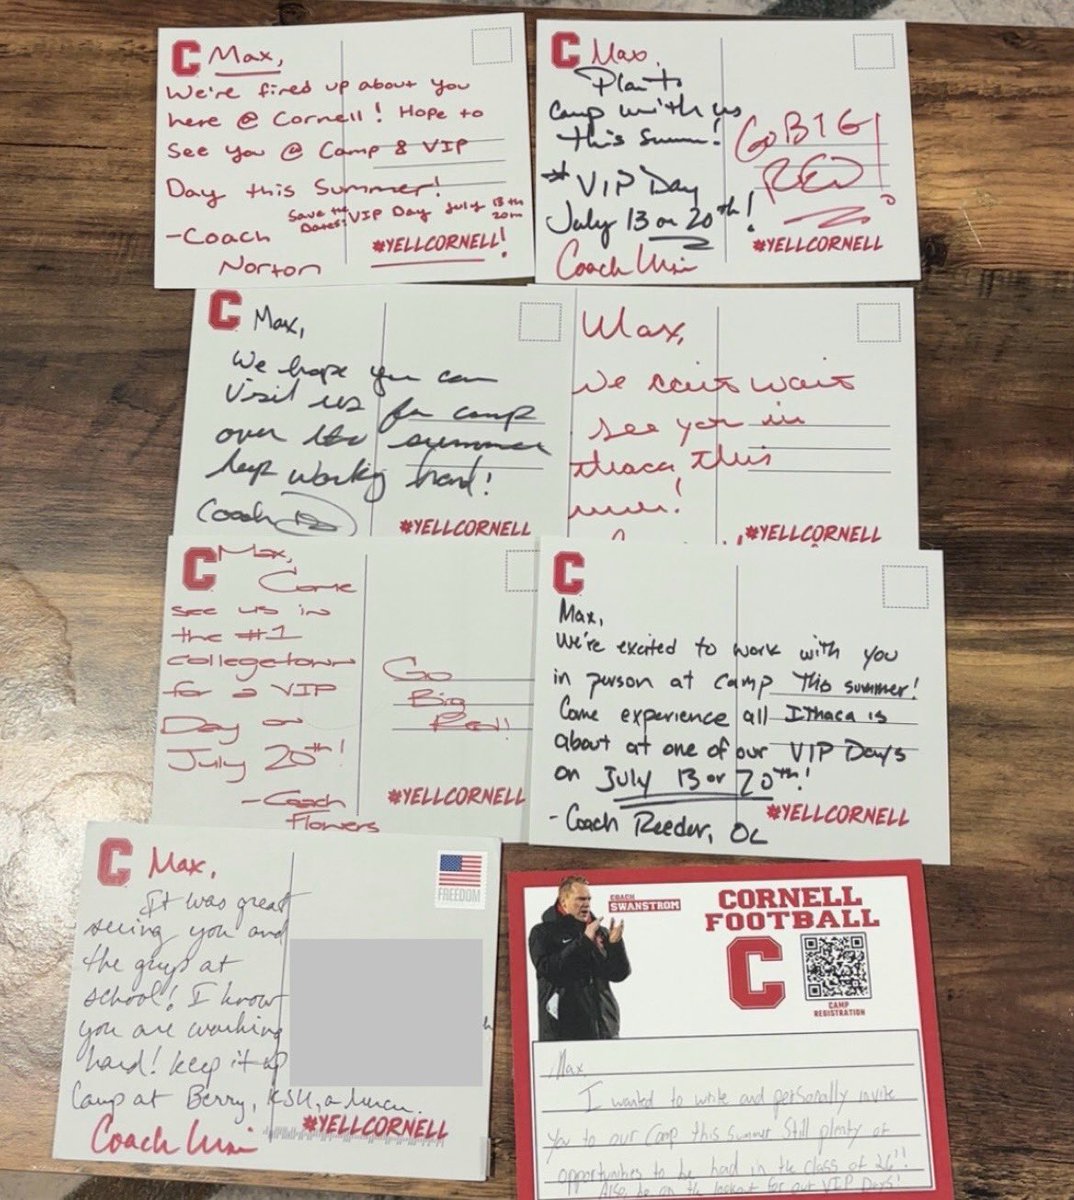 C Max,
We're fired up about you
here @ Cornell! Hope to
See you @ Camp & VIP
Day this Summer!
Save the Dates: VIP Day July 13th
20th
-Coach
Norton
#YELLCORNELL!
C Max,
Plan to
camp with us
this Summ!
* VIP Day
July 13 or 20th!
Coach
GO BIG
RED!
#YELLCORNELL
C Max,
We hope you can
visit us for camp
over the summer
keep working hard!
Coach
#YELLCORNELL
Max,
we can't wait
see you in
thaca this
#YELLCORNELL
C Max,
Come
see us in
the #1
collegetown
for a VIP
Day on
July 20th!
-Coach
Flowers
Go
Big
Red!!
#YELLCORNELL
C
Max,
We're excited to work with you
in person at camp this summer!
Come experience all Ithaca is
about at one of our VIP Days
on July 13 or 20th!
-Coach Reeder, OC
#YELLCORNELL
C Max,
It was great
seeing you and
the guys at
school! I know
you are working
hard! keep it up
Camp at Berry, KSU,
Coach
FREEDOM
#YELLCORNELL
COACH
SWANSTROM
CORNELL
FOOTBALL
C
CAMP
REGISTRATION
Max
I wanted to write and personally invite
you to our camp this summer Still plenty of
opportunities to be had in the class of 26"!
Also be on the lookout for our VIP Days!